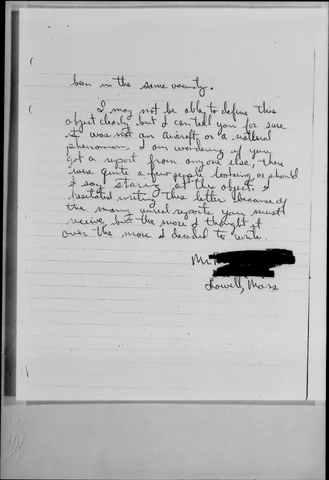 been in the same vacinity.
I may not be able to define this
object clearly but I can tell you for sure
it was not an aircraft, or a natural
phenomon. I am wondering if you
got a report from anyone else, there
were quite a few people looking or should
I say staring at the object. I
hesitated writing this letter because of
the many unreal reports you must
receive but the more I thought it
over the more I decided to write.
Mr
Lowell, Mass